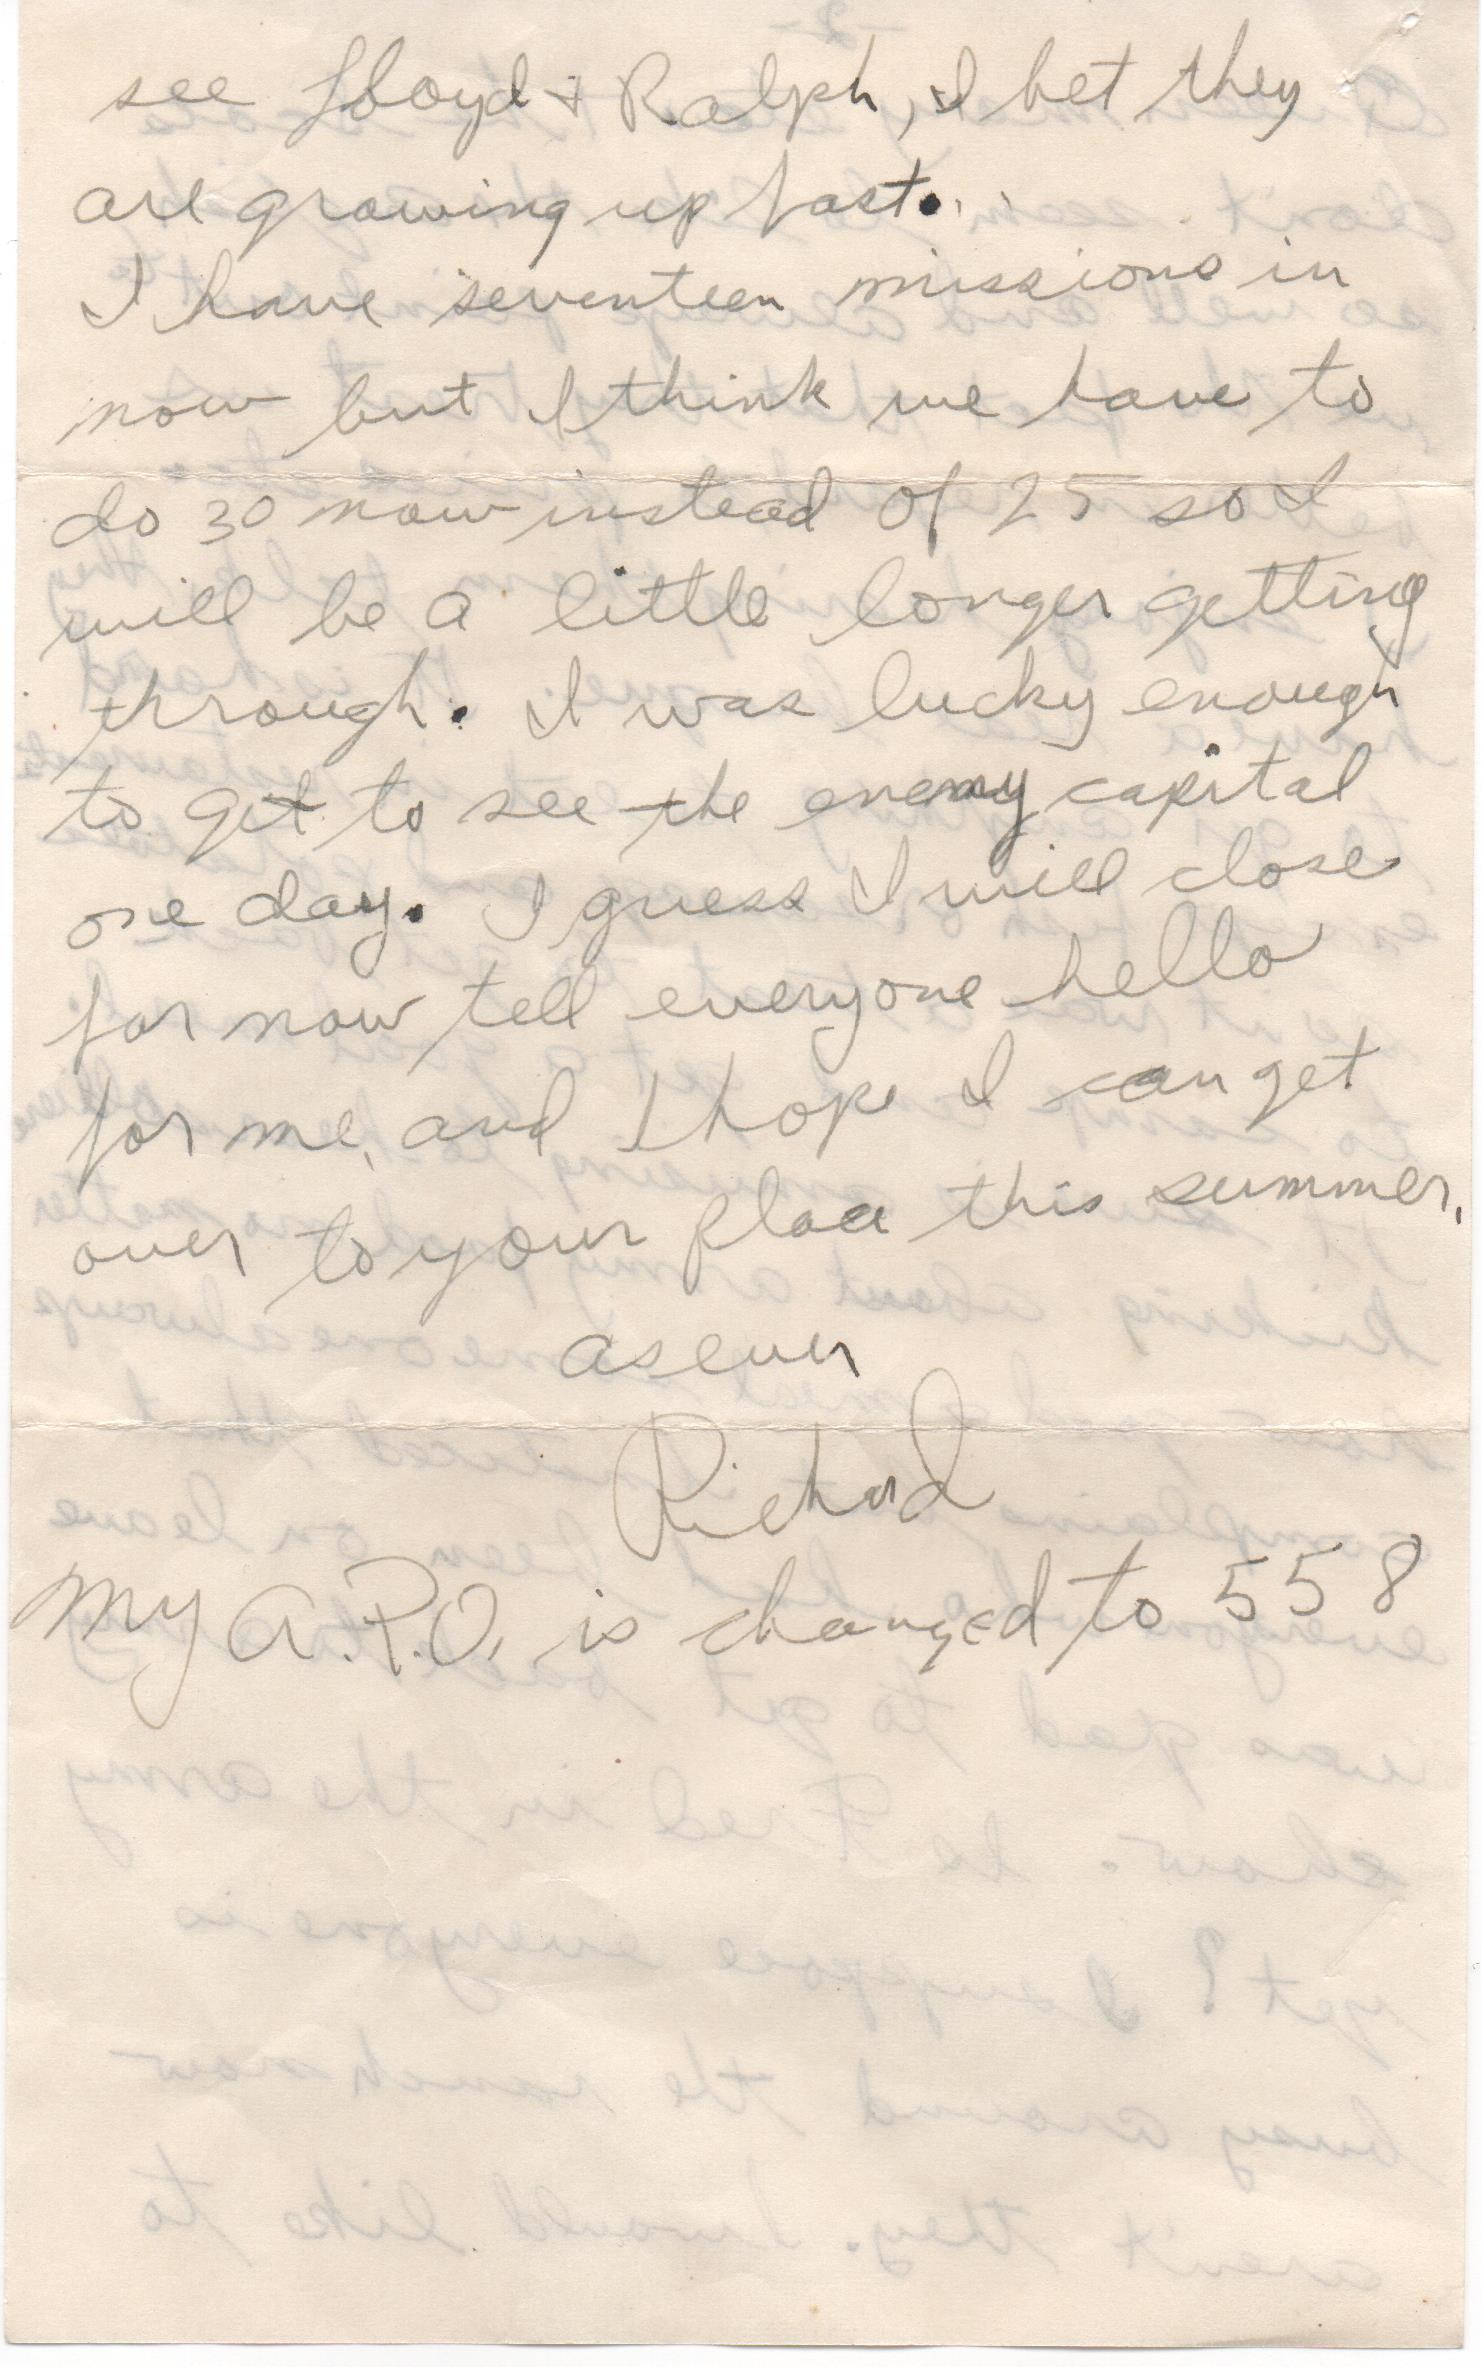 see Lloyd & Ralph, I bet they
are growing up fast.
I have seventeen missions in
now but I think we have to
do 30 now instead of 25 so I
will be a little longer getting
through. I was lucky enough
to get to see the enemy capital
one day. I guess I will close
for now tell everyone hello
for me, and I hope I can get
over to your place this summer.
as ever
Richard
My A.P.O. is changed to 558